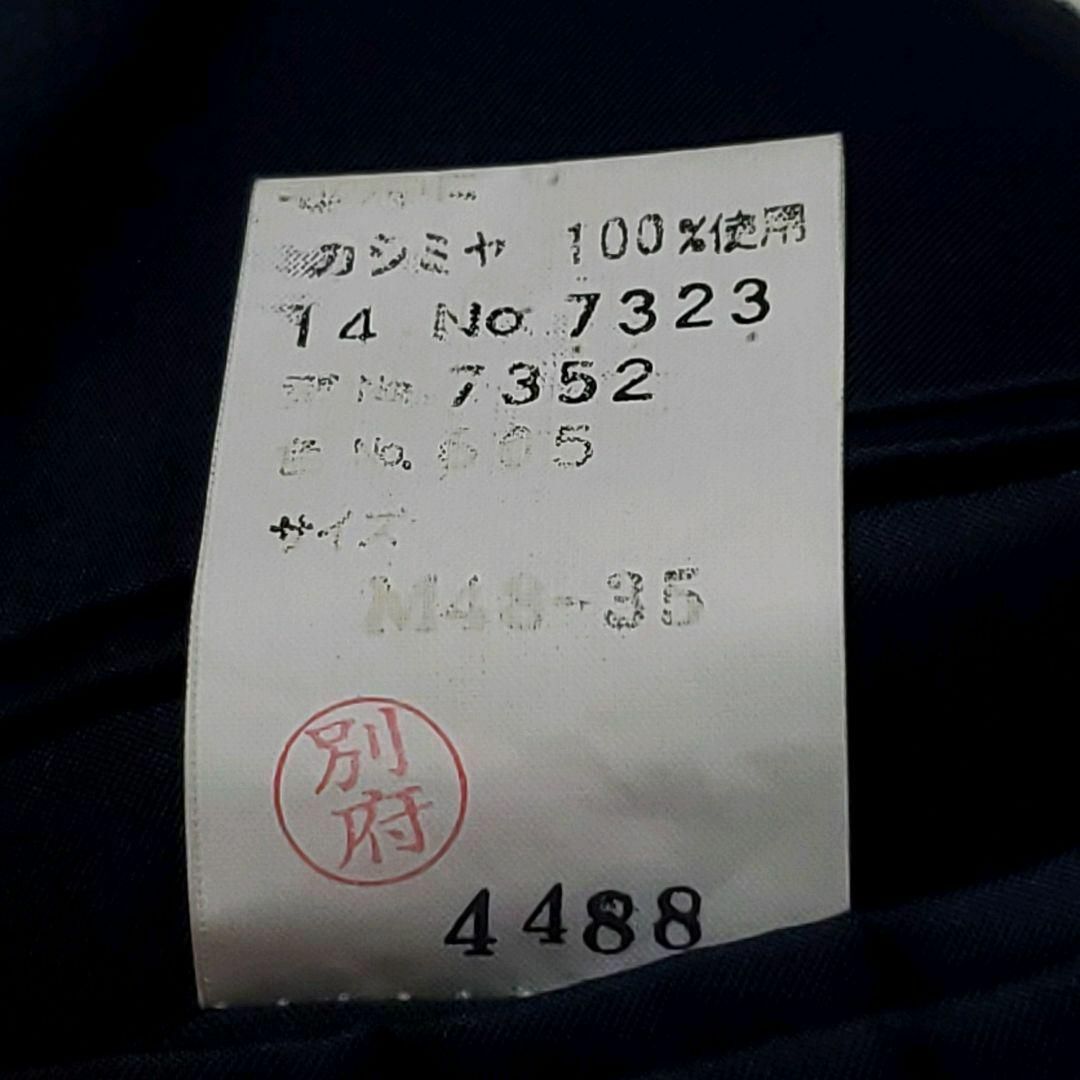 カシミヤ 100%使用
14 No 7323
No. 7352
No. 605
サイズ
M48-35
別府
4488